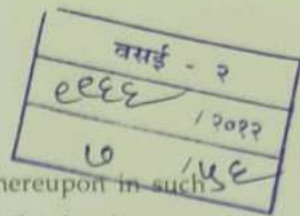 वसई - २
११६६ / २०१२
७ / ५६
hereupon in such